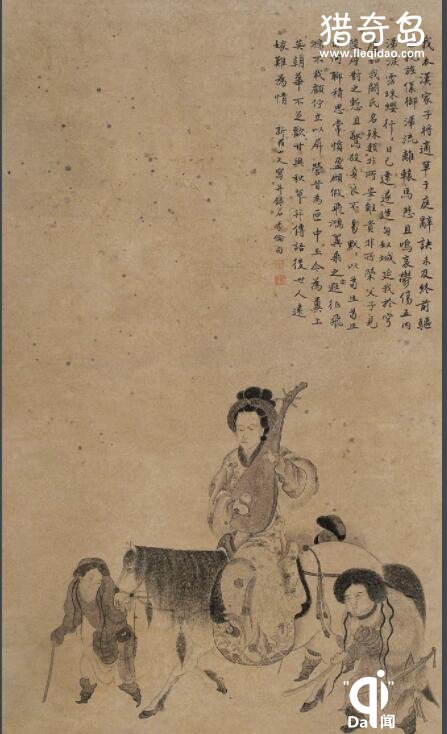 猎奇岛
www.lieqidao.com
我本漢家子將適單于庭辭訣未及終前驅
旌僕御涕流離轅馬悲且鳴哀鬱傷五內
淚霑珠纓行日已遠遂造匈奴城延我於穹
加我閼氏名殊類非所安雖貴非所榮父子見
陵辱對之慙且驚殺身良不易默以苟生苟生
何聊積思常憤盈願假飛鴻翼乘之遐征飛
鴻不我顧佇立以屏營昔為匣中玉今為糞上
英朝華不足歡甘與秋草并傳語後世人遠
嫁難為情
"qi"
Da闻